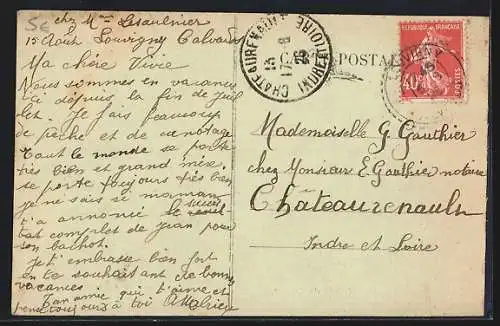 5e
chez Mme Lsaulnier
15 Août Louvigny Calvados
Ma chère Vivie
Nous sommes en vacances
ici depuis la fin de juil
let. Je fais beaucoup
de pêche et de canotage
Tout le monde se porte
très bien et grand mère
se porte toujours très bien
je ne sais si maman
t'a annoncé le succès
complet de Jean pour
son bachot.
Je t'embrasse bien fort
en te souhaitant de bonnes
vacances
Ton amie qui t'aime et
pense toujours à toi
CHATEAURENAULT (INDRE ET LOIRE)
POSTA
REPUBLIQUE FRANÇAISE
40c
POSTES
Mademoiselle G. Gauthier
chez Monsieur E. Gauthier notaire
Châteaurenault
Indre et Loire